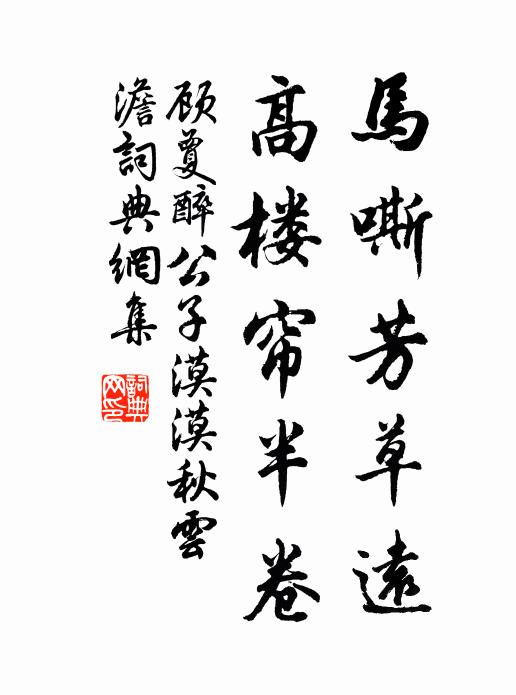 馬嘶芳草遠
高楼帘半卷
顾夐醉公子漠漠秋雲
澹詞典網集
詞典网印